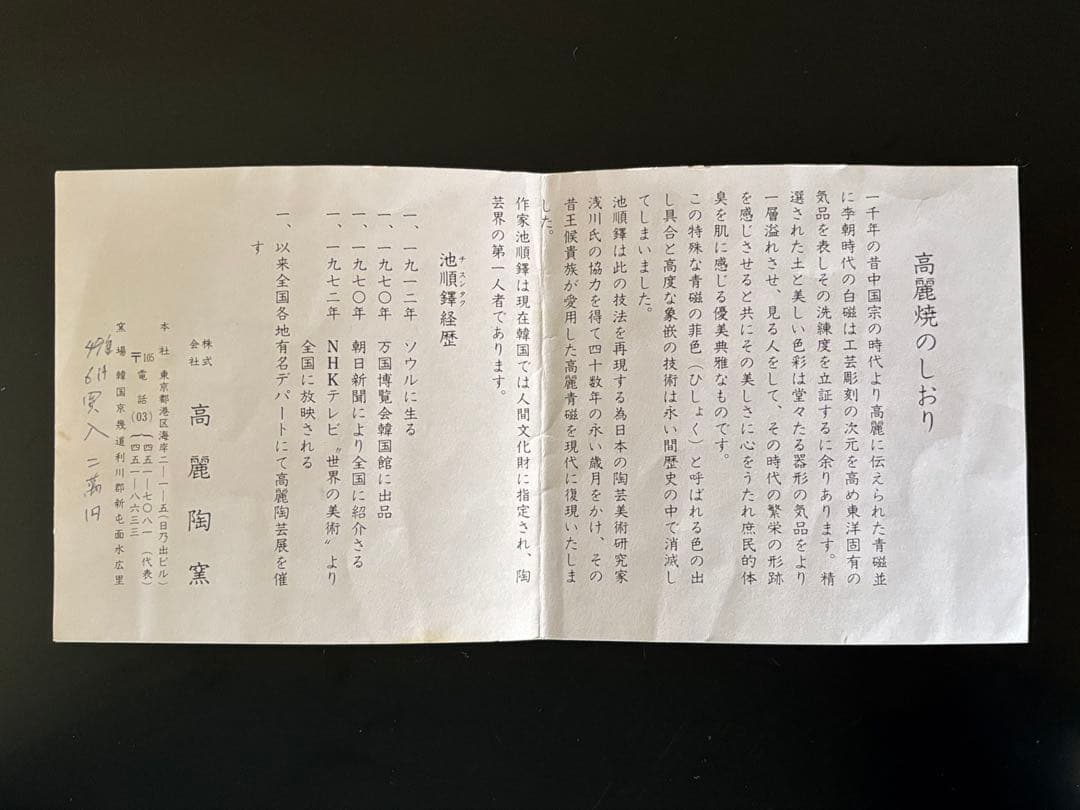 高麗焼のしおり
一千年の昔中国宗の時代より高麗に伝えられた青磁並
に李朝時代の白磁は工芸彫刻の次元を高め東洋固有の
気品を表しその洗練度を立証するに余りあります。精
選された土と美しい色彩は堂々たる器形の気品をより
一層溢れさせ、見る人をして、その時代の繁栄の形跡
を感じさせると共にその美しさに心をうたれ庶民的体
臭を肌に感じる優美典雅なものです。
この特殊な青磁の菲色（ひしょく）と呼ばれる色の出
し具合と高度な象嵌の技術は永い間歴史の中で消滅し
てしまいました。
池順鐸は此の技法を再現する為日本の陶芸美術研究家
浅川氏の協力を得て四十数年の永い歳月をかけ、その
昔王候貴族が愛用した高麗青磁を現代に復現いたしま
した。
作家池順鐸は現在韓国では人間文化財に指定され、陶
芸界の第一人者であります。
池順鐸経歴
チ・スンタク
一、一九一二年 ソウルに生る
一、一九七〇年 万国博覧会韓国館に出品
一、一九七〇年 朝日新聞により全国に紹介さる
一、一九七二年 NHKテレビ〝世界の美術〟より
全国に放映される
一、以来全国各地有名デパートにて高麗陶芸展を催
す
株式会社 高麗陶窯
本社 東京都港区海岸二―一―五（日乃出ビル）
〒105 電話（03）{四五一―七〇八一（代表）
四五一―八六三三
窯場 韓国京幾道利川郡新屯面水広里
6月買入 二萬円